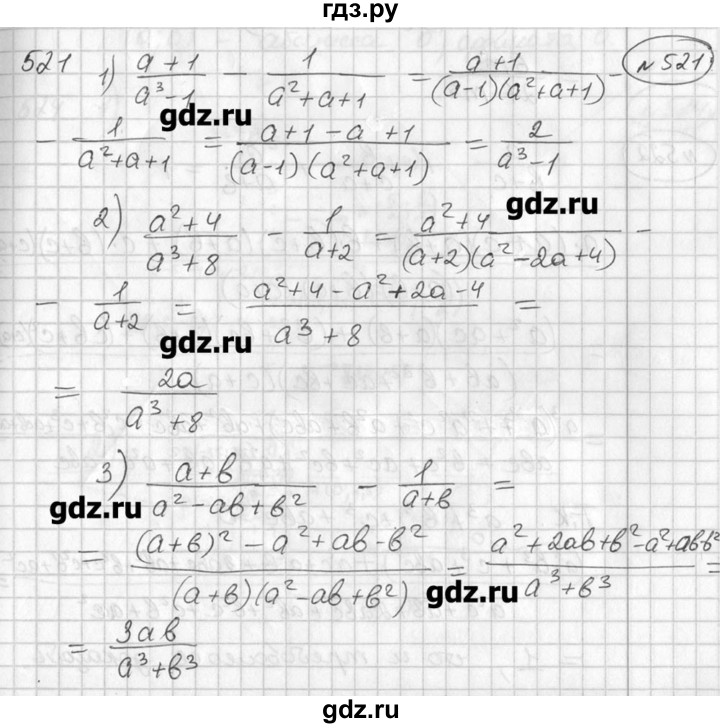 гдз.ру
521 1) (a+1)/(a³-1) - 1/(a²+a+1) = (a+1)/((a-1)(a²+a+1)) - №521
- 1/(a²+a+1) = (a+1-a+1)/((a-1)(a²+a+1)) = 2/(a³-1)
gdz.ru
gdz.ru
2) (a²+4)/(a³+8) - 1/(a+2) = (a²+4)/((a+2)(a²-2a+4)) -
- 1/(a+2) = (a²+4-a²+2a-4)/(a³+8) =
gdz.ru
= 2a/(a³+8)
3) (a+b)/(a²-ab+b²) - 1/(a+b) =
gdz.ru
= ((a+b)²-a²+ab-b²)/((a+b)(a²-ab+b²)) = (a²+2ab+b²-a²+ab-b²)/(a³+b³) =
gdz.ru
= 3ab/(a³+b³)